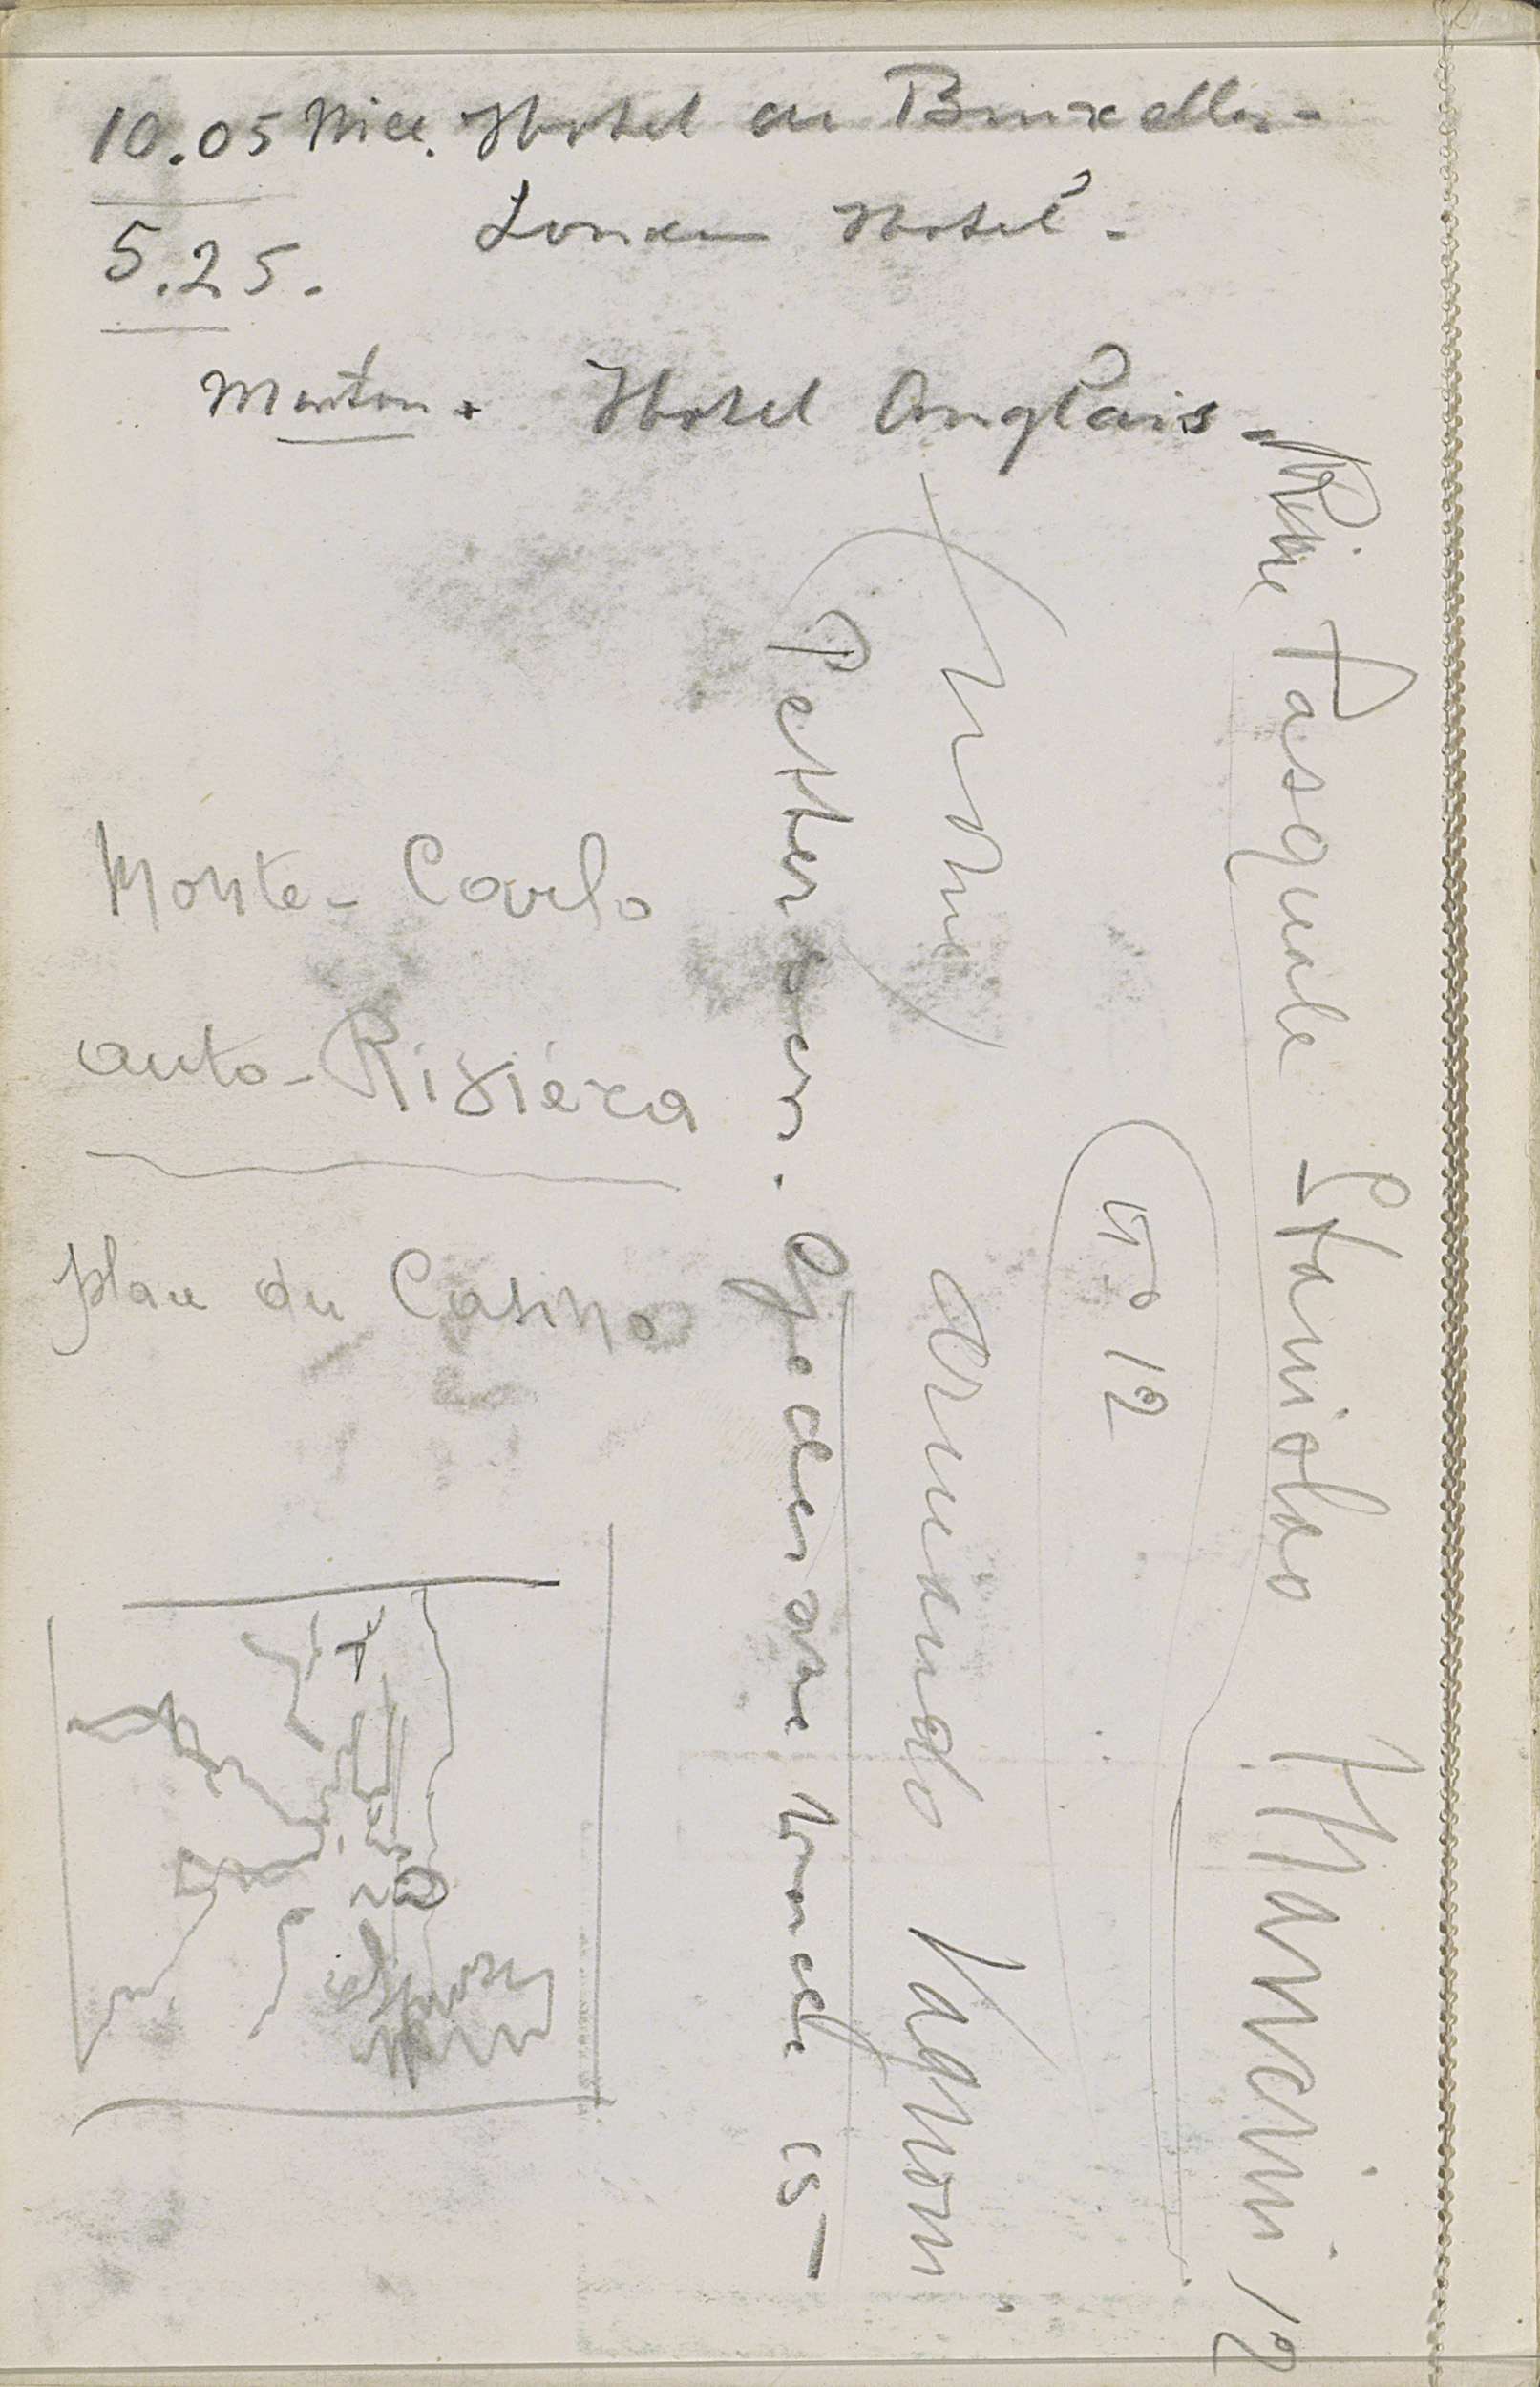 10.05 Nice. Hotel de Bruxelles-
5.25. London Hotel-
Menton. Hotel Anglais-
Monte-Carlo
auto-Riviéra
place du Casino
Rue Pasquale Stanislao Mancini 12
N° 12
(Rome)
Armando Vagnoni
Petersen.